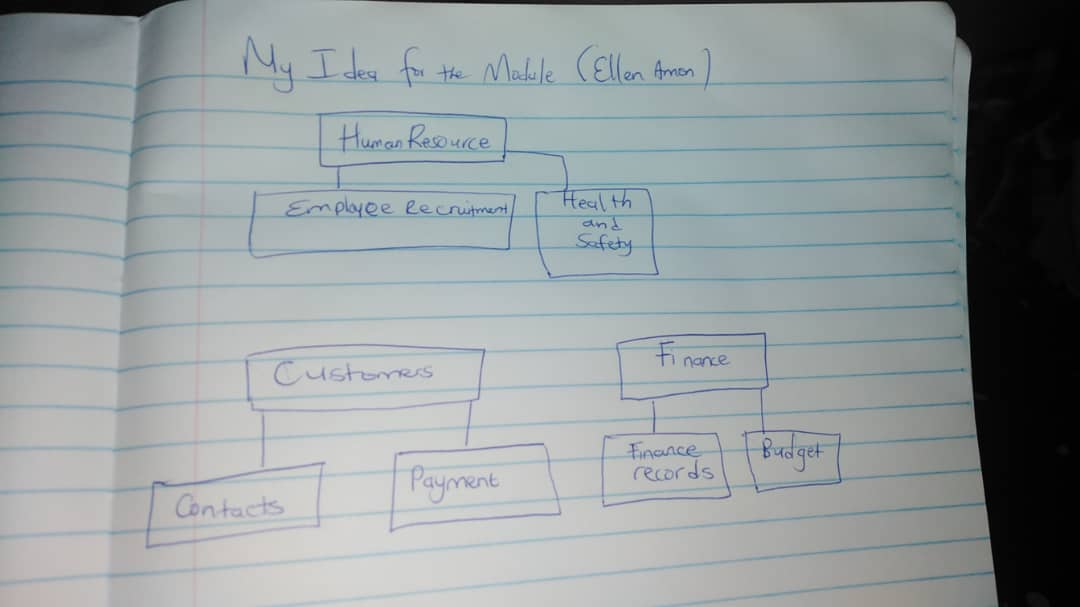 My Idea for the Module (Ellen Amon)
Human Resource
Employee Recruitment
Health
and
Safety
Customers
Contacts
Payment
Finance
Finance
records
Budget